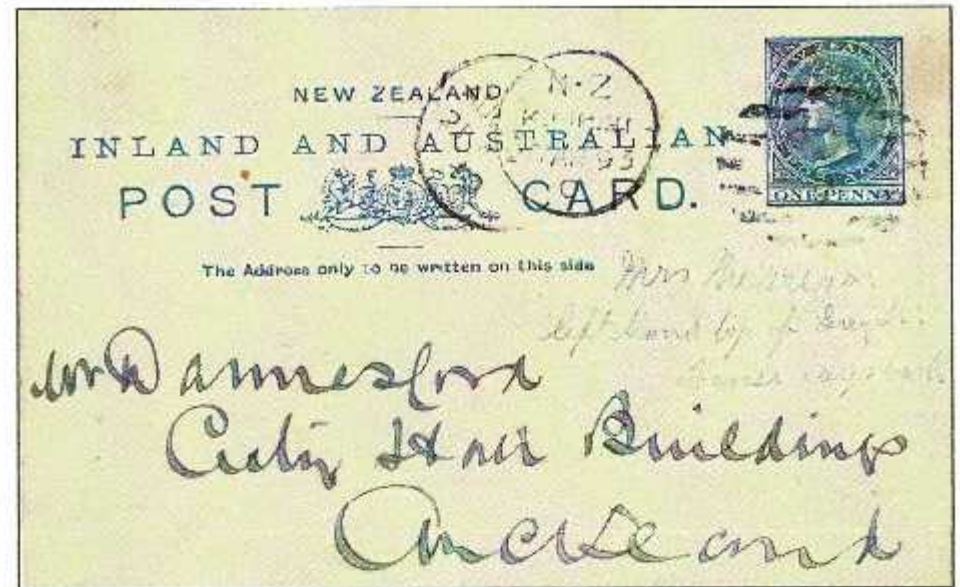 NEW ZEALAND
N·Z
INLAND AND AUSTRALIAN
93
POST CARD.
ONE PENNY
The Address only to be written on this side
Mrs
left hand top of
Mr Dannesford
City Hall Buildings
Auckland